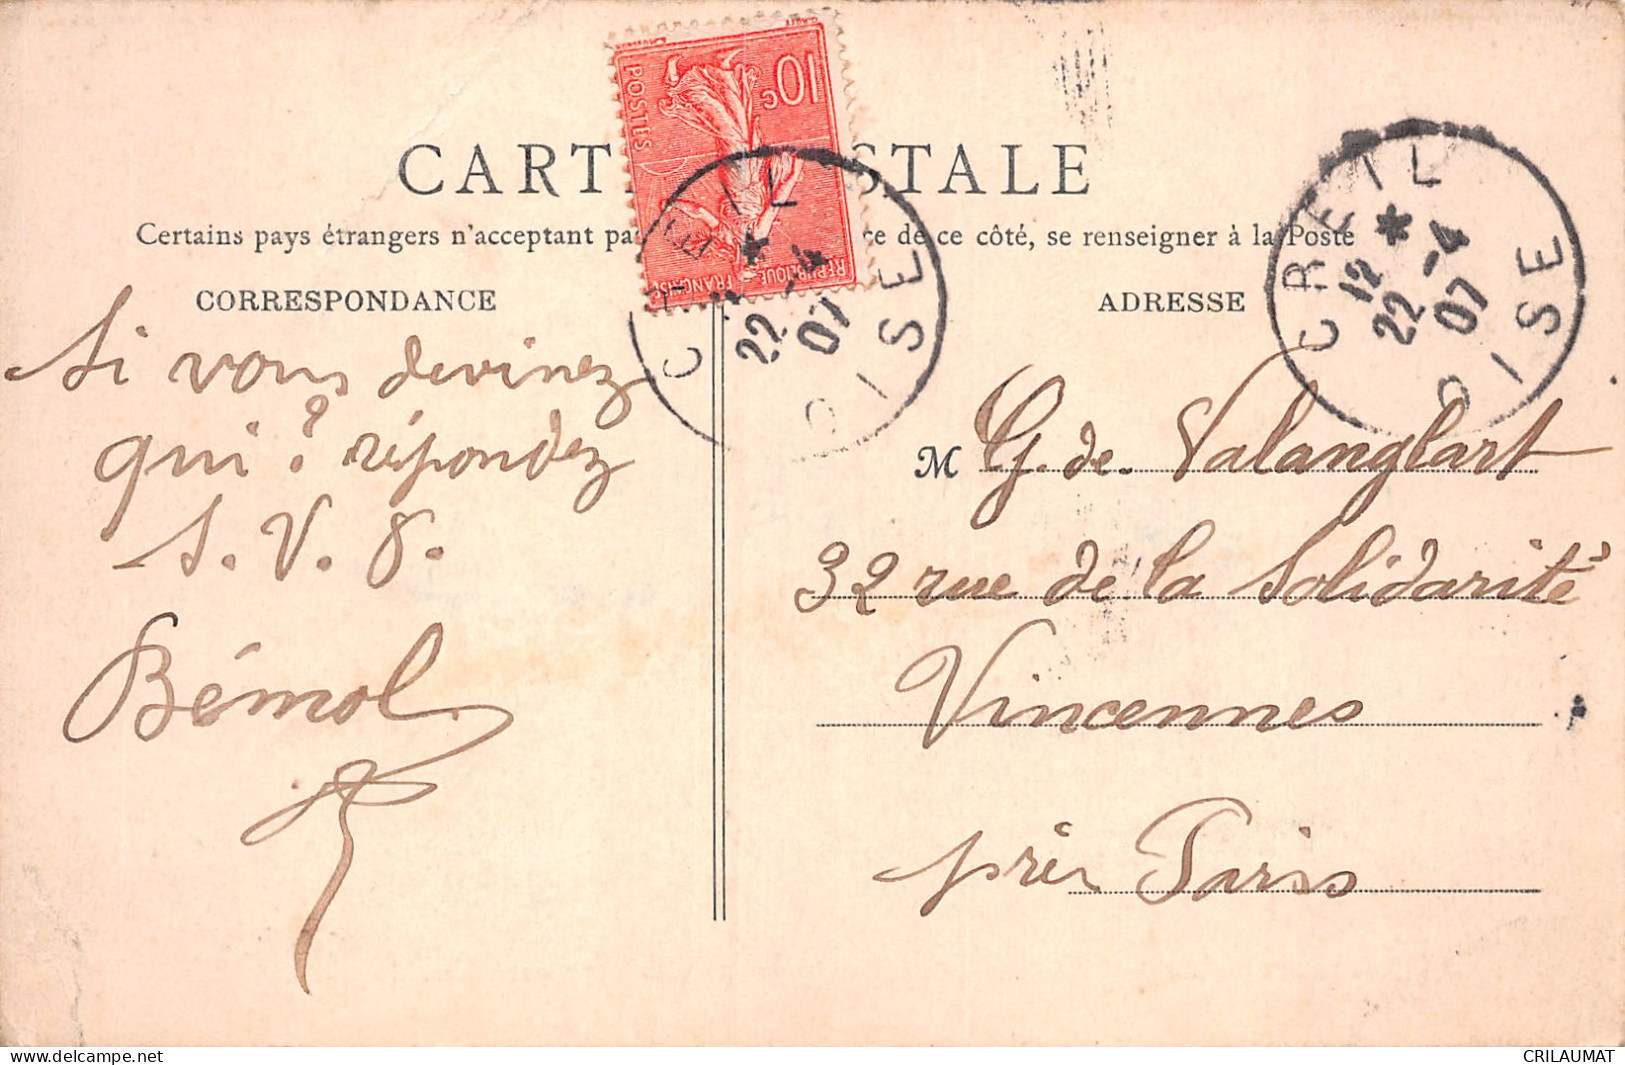 CARTE POSTALE
Certains pays étrangers n'acceptant pas ce de ce côté, se renseigner à la Poste
CORRESPONDANCE
ADRESSE
10c
POSTES
REPUBLIQUE
FRANÇAISE
CREIL
*
12
22 -4
07
OISE
CREIL
*
12
22 -4
07
OISE
Si vous devinez
qui ? répondez
S. V. P.
Bémol
M G. de Valanglart
32 rue de la Solidarité
Vincennes
près Paris
delcampe.net
CRILAUMAT